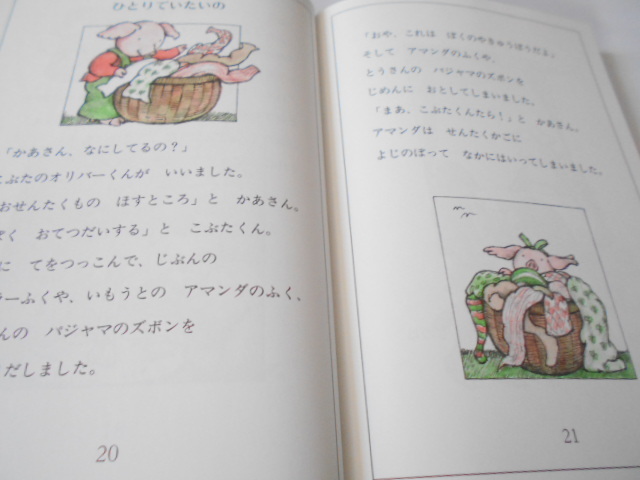 ひとりでいたいの
「かあさん、なにしてるの？」
こぶたのオリバーくんが いいました。
おせんたくもの ほすところ」と かあさん。
ぼく おてつだいする」と こぶたくん。
に てをつっこんで、じぶんの
ーふくや、いもうとの アマンダのふく、
んの パジャマのズボンを
だしました。
20
「おや、これは ぼくのやきゅうぼうだよ」
そして アマンダのふくや、
とうさんの パジャマのズボンを
じめんに おとしてしまいました。
「まあ、こぶたくんたら！」と かあさん。
アマンダは せんたくかごに
よじのぼって なかにはいってしまいました。
21